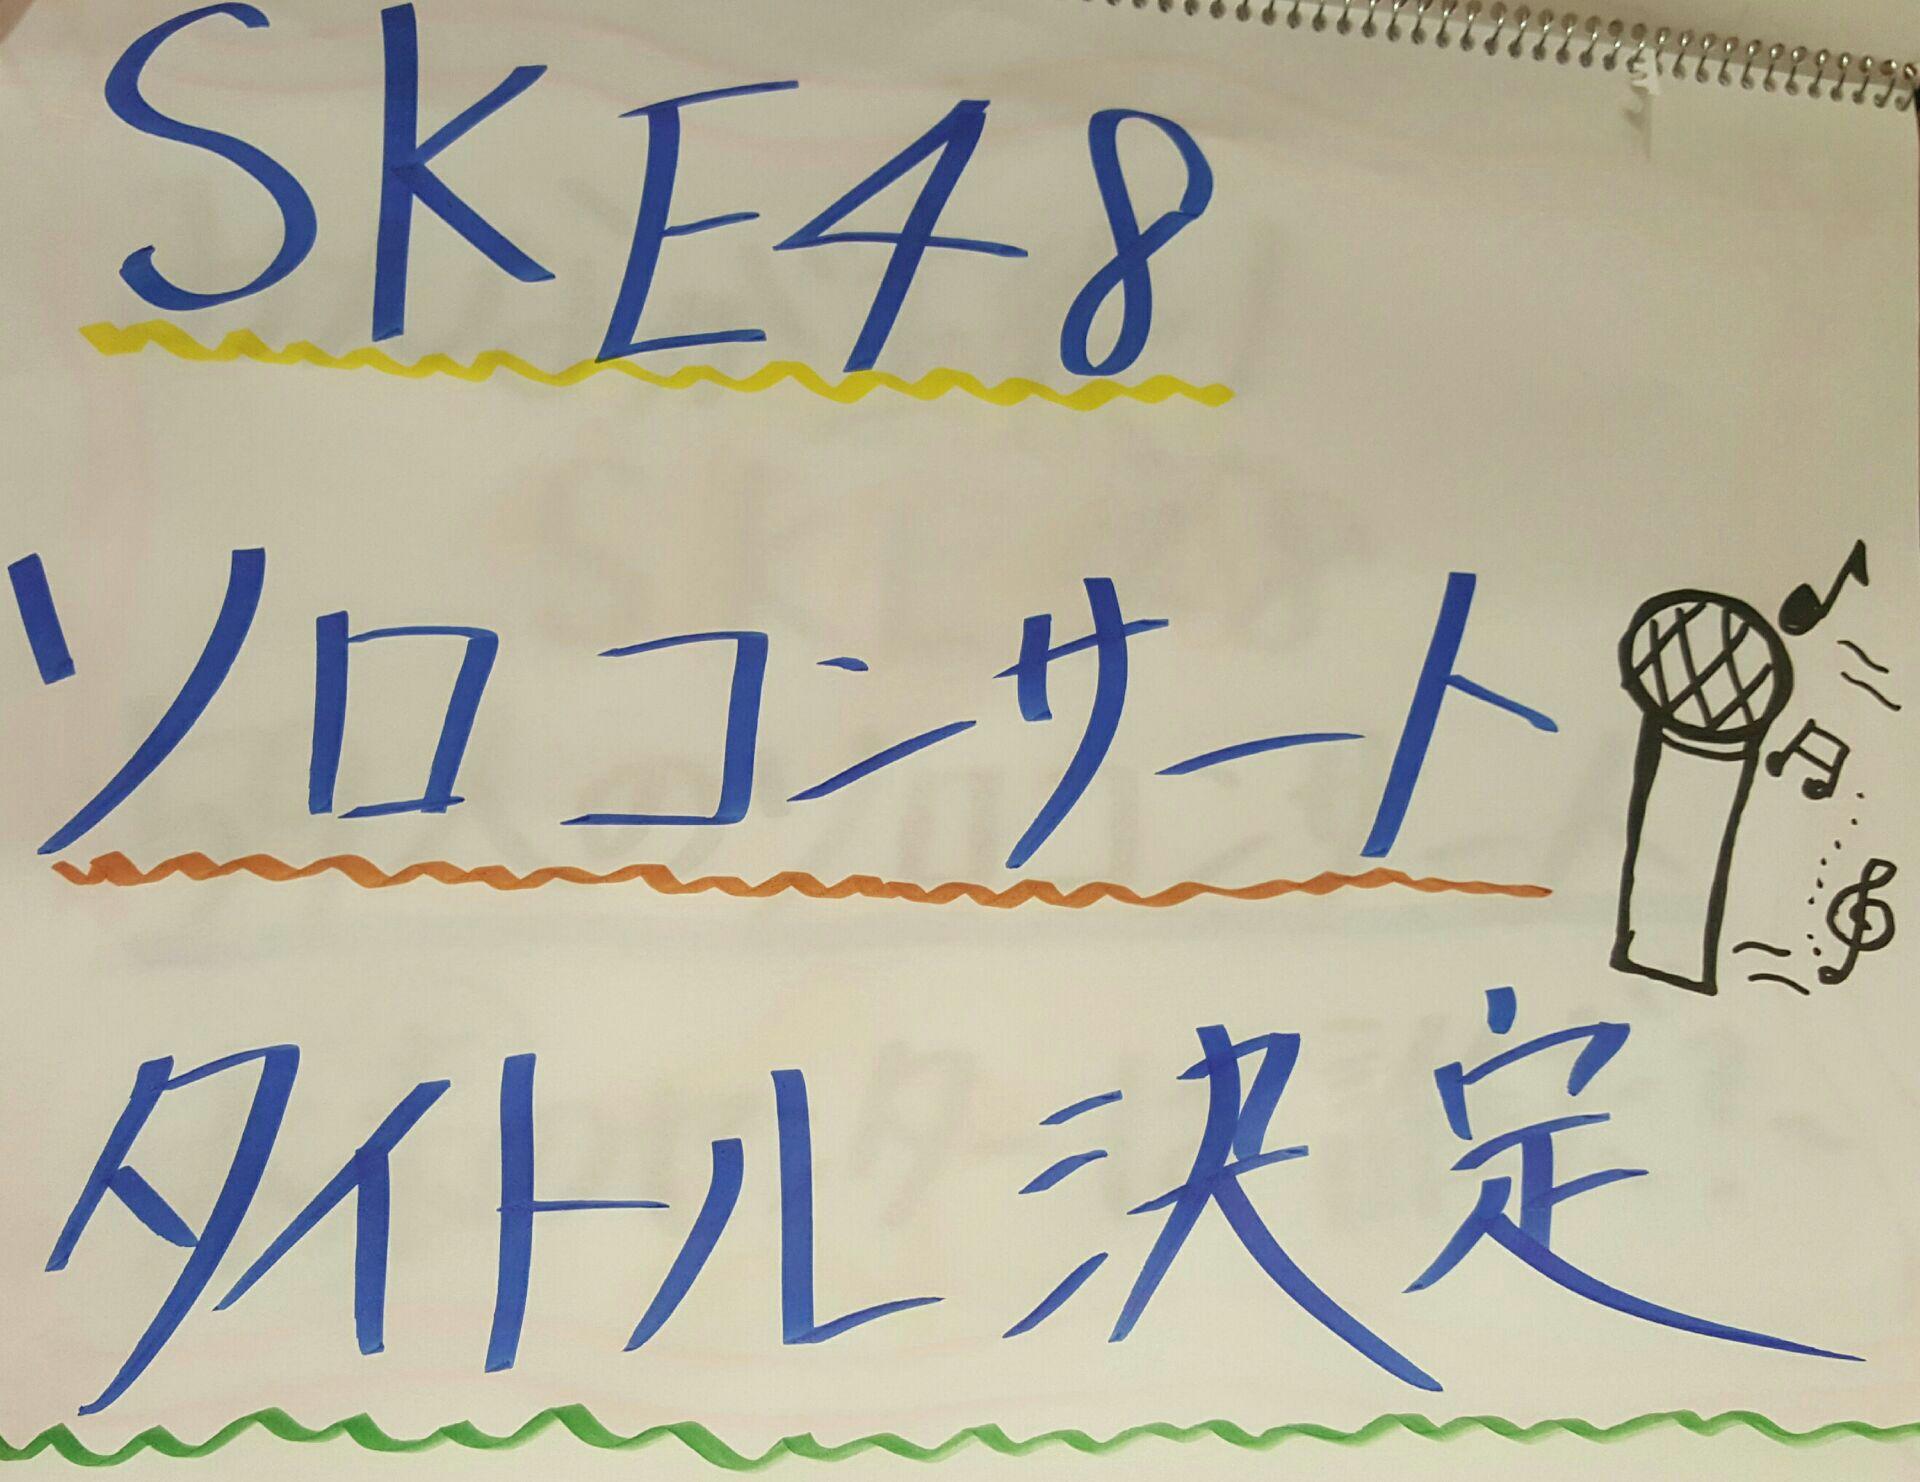 SKE48
ソロコンサート
タイトル決定